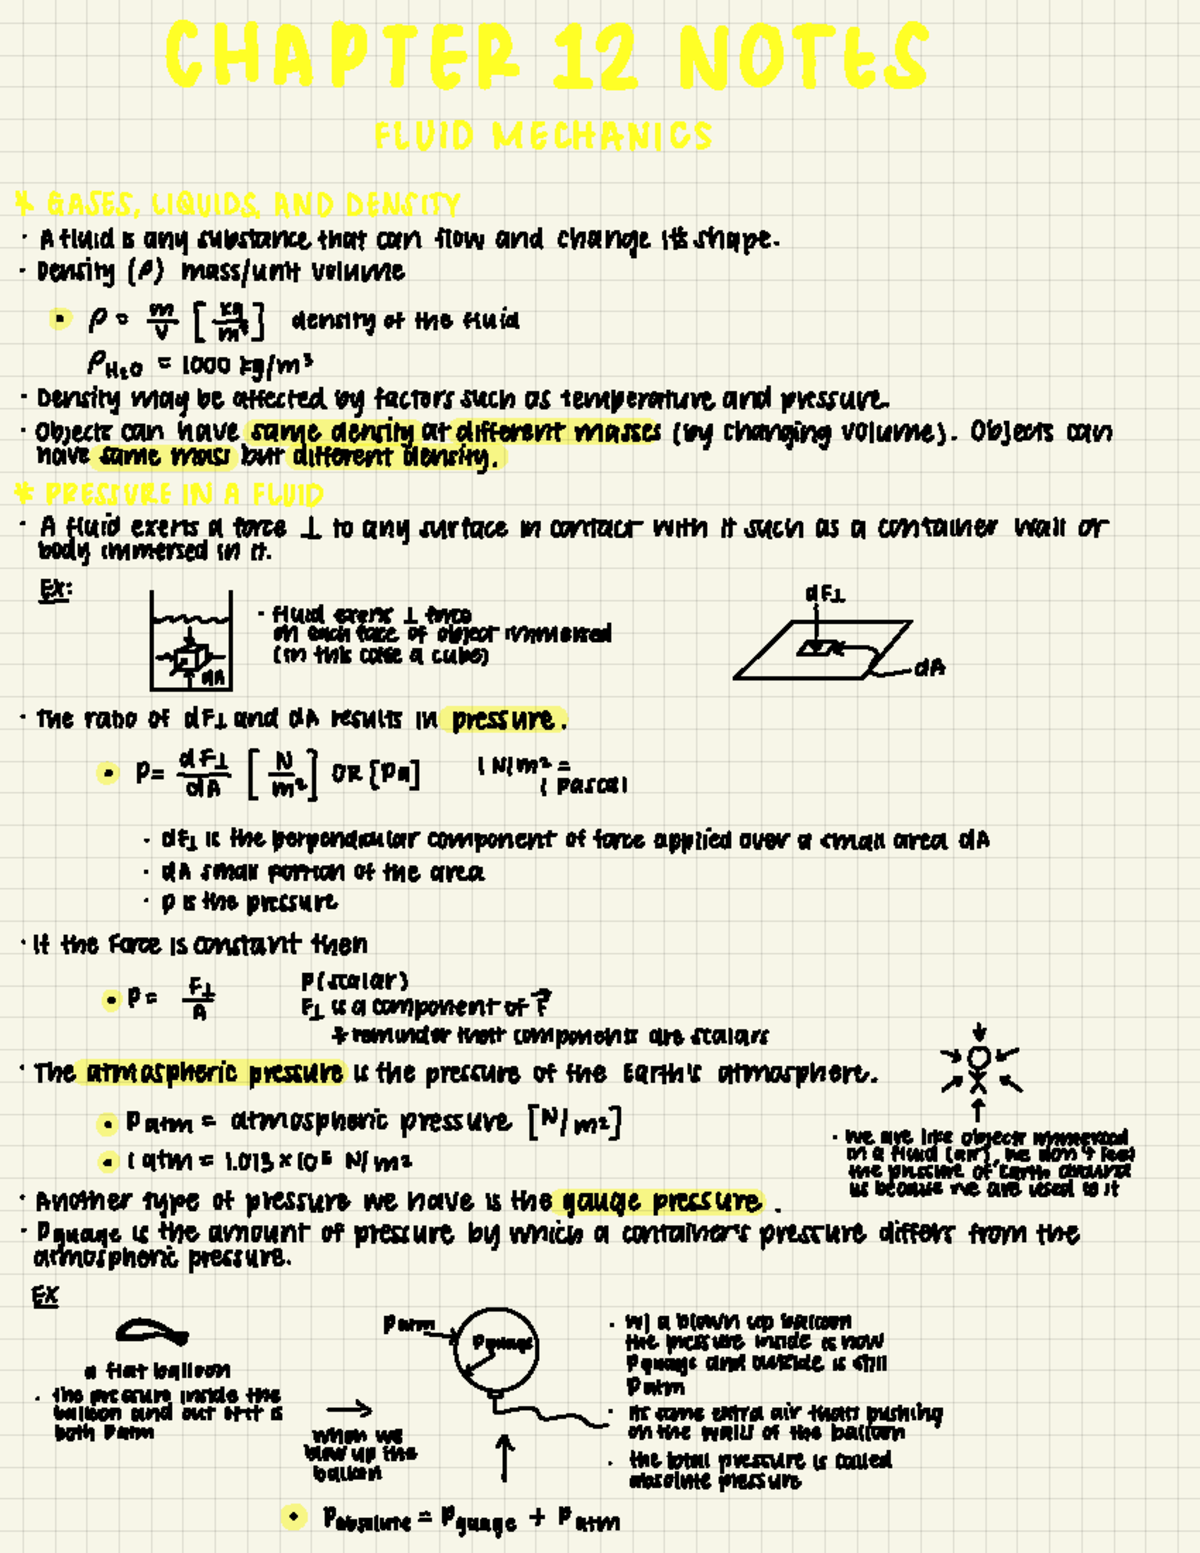 CHAPTER 12 NOTES
FLUID MECHANICS
* GASES, LIQUIDS, AND DENSITY
· A fluid is any substance that can flow and change it's shape.
· Density (ρ) mass/unit volume
• ρ = m/V [kg/m³] density of the fluid
ρH₂O = 1000 kg/m³
· Density may be affected by factors such as temperature and pressure.
· Objects can have same density at different masses (by changing volume). Objects can
have same mass but different density.
* PRESSURE IN A FLUID
· A fluid exerts a force ⊥ to any surface in contact with it such as a container wall or
body immersed in it.
Ex:
· fluid exerts ⊥ force
on each face of object immersed
(in this case a cube)
dA
dF⊥
dA
· The ratio of dF⊥ and dA results in pressure.
• P = dF⊥/dA [N/m²] OR [Pa] 1 N/m² =
1 Pascal
· dF⊥ is the perpendicular component of force applied over a small area dA
· dA small portion of the area
· p is the pressure
· If the Force is constant then
• P = F⊥/A P (scalar)
F⊥ is a component of F⃗
* reminder that components are scalars
· The atmospheric pressure is the pressure of the Earth's atmosphere.
• Patm = atmospheric pressure [N/m²]
• 1 atm = 1.013 × 10⁵ N/m²
· we are like objects immersed
in a fluid (air), we don't feel
the pressure of Earth around
us because we are used to it
· Another type of pressure we have is the gauge pressure.
· Pguage is the amount of pressure by which a container's pressure differs from the
atmospheric pressure.
EX
a flat balloon
· the pressure inside the
balloon and out of it is
both Patm
when we
blow up the
balloon
Patm
Pguage
· w/ a blown up balloon
the pressure inside is now
Pguage and outside is still
Patm
· its some extra air thats pushing
on the walls of the balloon
· the total pressure is called
absolute pressure
• Pabsolute = Pguage + Patm